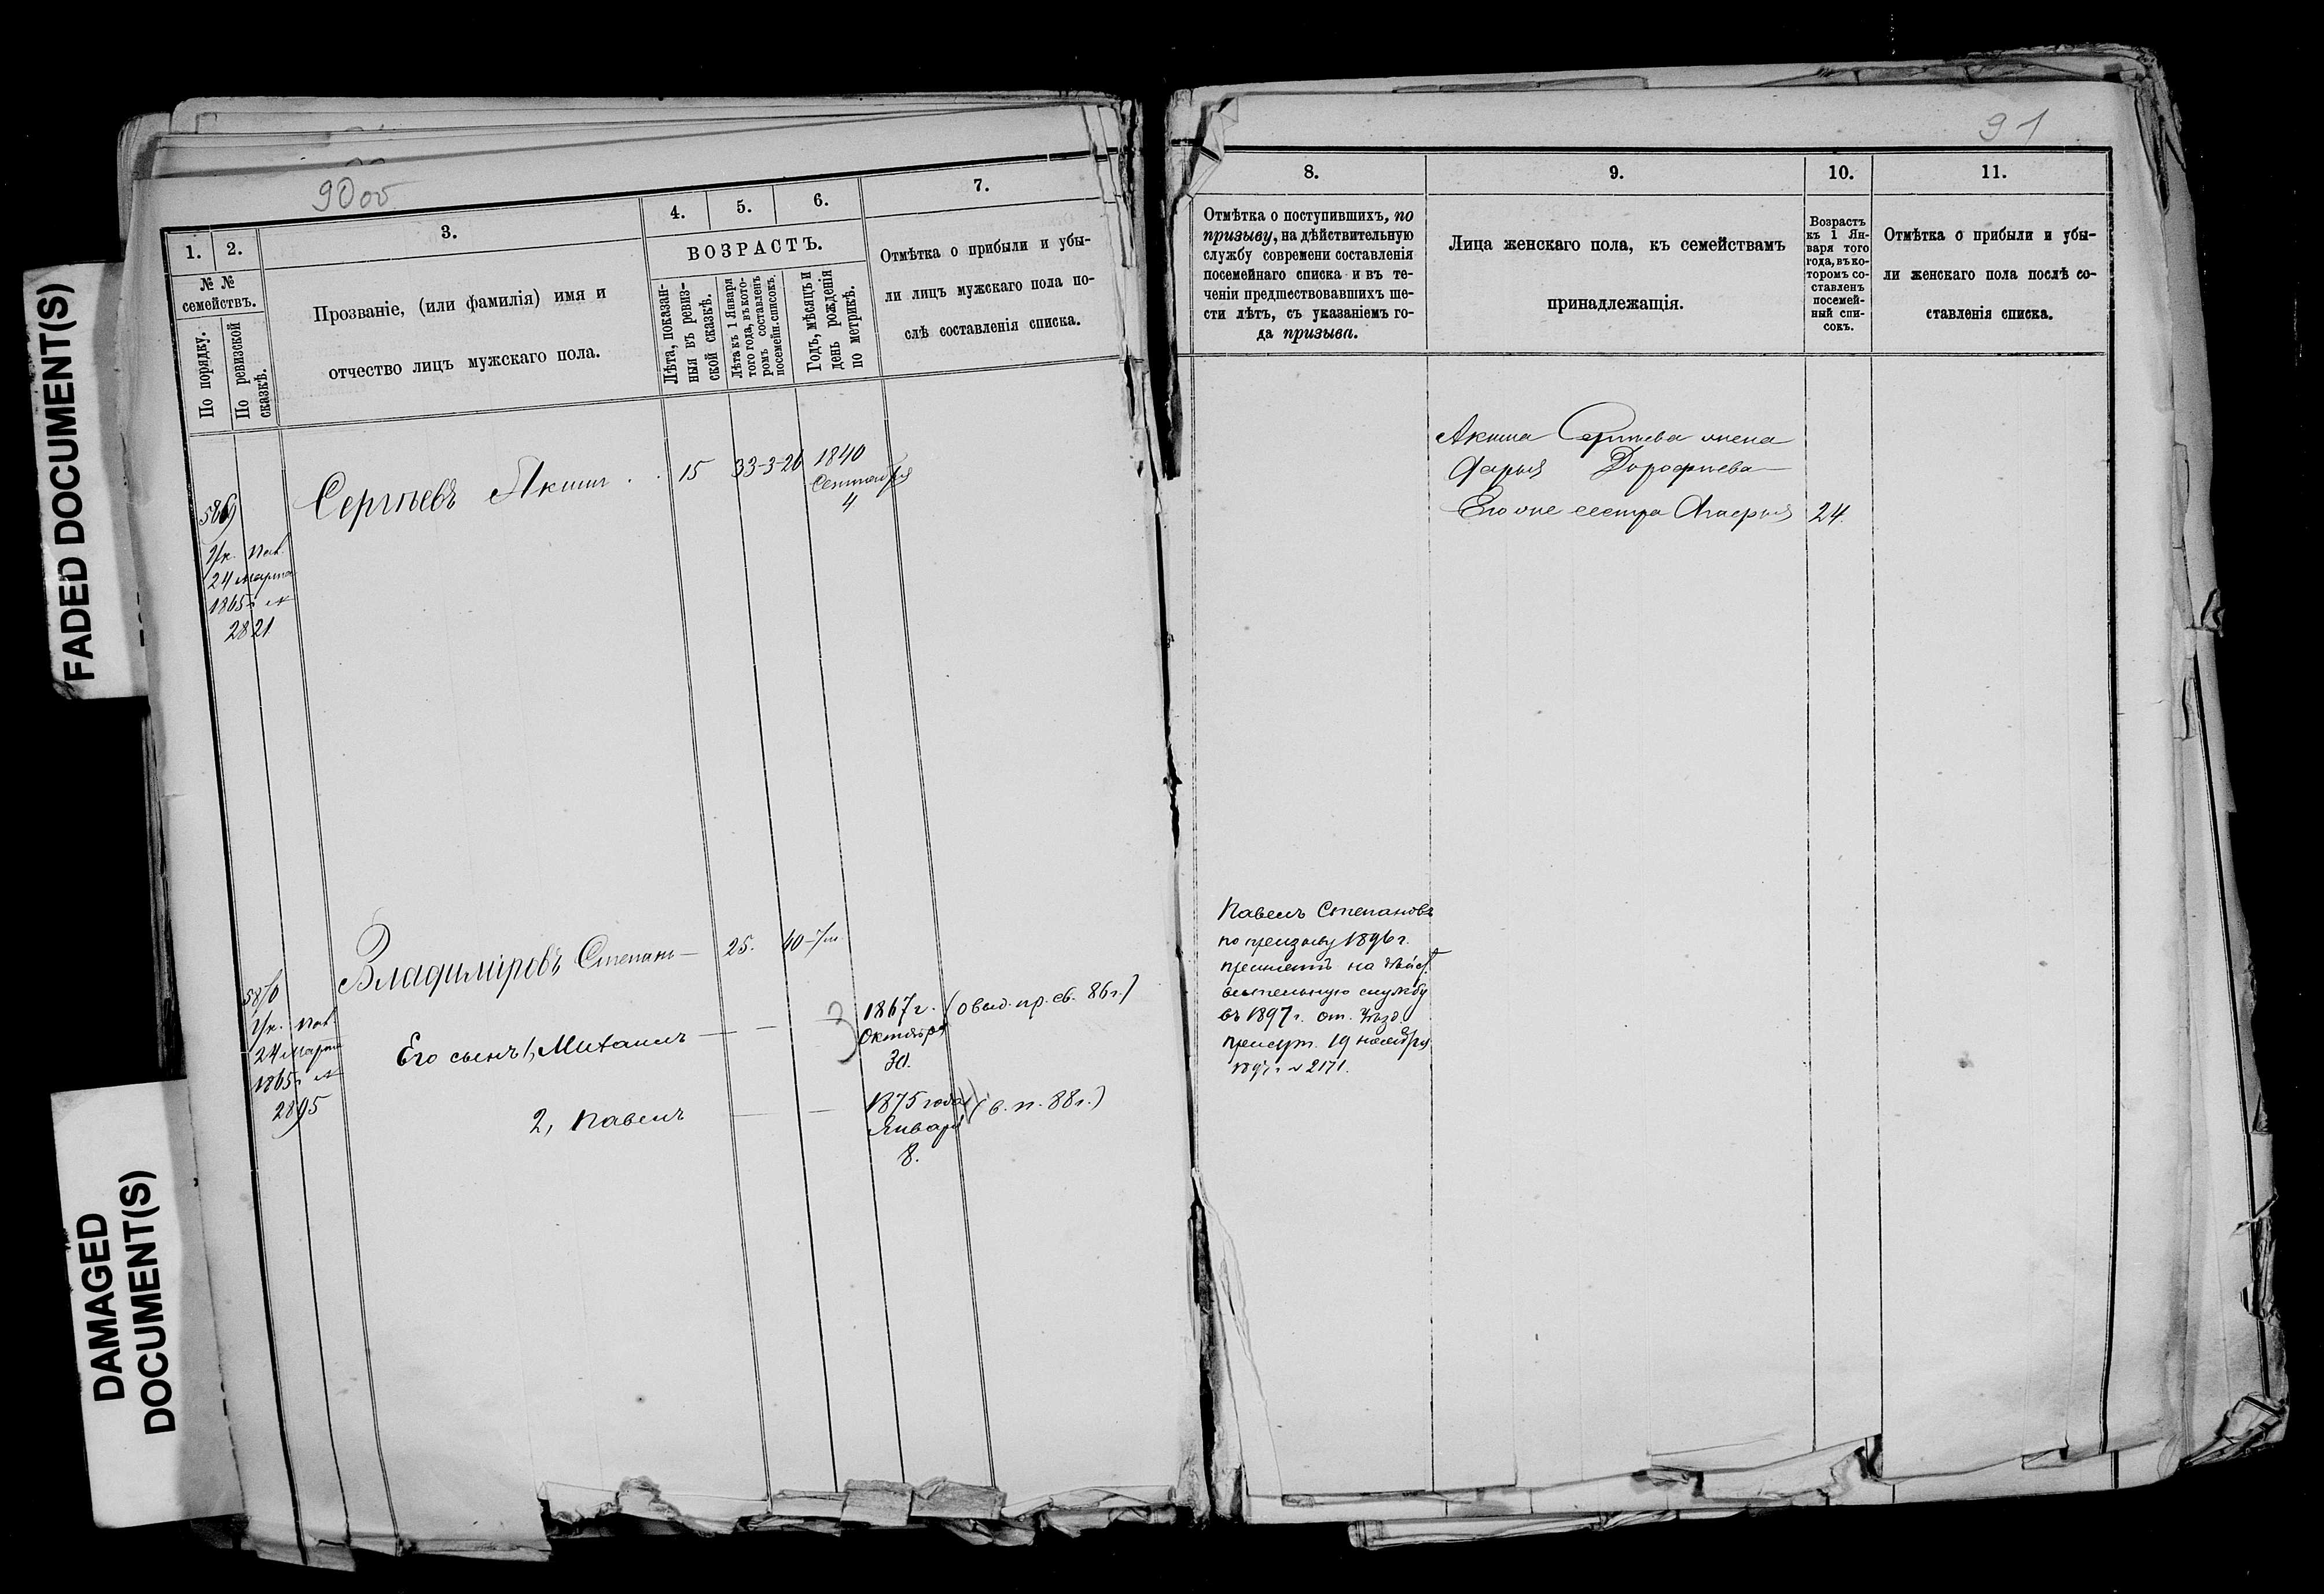 FADED DOCUMENT(S)
DAMAGED
DOCUMENT(S)
90об
1.
2.
3.
4.
5.
6.
7.
№ №
семействъ.
По порядку.
По ревизской
сказкѣ.
Прозваніе, (или фамилія) имя и
отчество лицъ мужскаго пола.
ВОЗРАСТЪ.
Лѣта, показан-
ныя въ ревиз-
ской сказкѣ.
Лѣта къ 1 Января
того года, въ кото-
ромъ составленъ
посемейн. списокъ.
Годъ, мѣсяцъ и
день рожденія
по метрикѣ.
Отмѣтка о прибыли и убы-
ли лицъ мужскаго пола по-
слѣ составленія списка.
5869
Ук. Пал.
24 марта
1865 г №
2821
Сергѣевъ Якимъ
15
33-3-26
1840
Сентября
4
5870
Ук. Пал.
24 марта
1865 г №
2895
Владиміровъ Степанъ
25.
40
Его сынъ 1, Михаилъ
1867 г. (о выд. пр. св. 86 г.)
Октября
30.
2, Павелъ
1875 года (в. п. 88 г.)
Январ
8.
91
8.
9.
10.
11.
Отмѣтка о поступившихъ, по
призыву, на дѣйствительную
службу современи составленія
посемейнаго списка и въ те-
ченіи предшествовавшихъ ше-
сти лѣтъ, съ указаніемъ го-
да призыва.
Лица женскаго пола, къ семействамъ
принадлежащія.
Возрастъ
къ 1 Ян-
варя того
года, въ ко-
торомъ со-
ставленъ
посемей-
ный спи-
сокъ.
Отмѣтка о прибыли и убы-
ли женскаго пола послѣ со-
ставленія списка.
Акима Сергѣева жена
Дарья Дорофѣева
Его же сестра 24.
Павелъ Степановъ
по призыву 1896 г.
принятъ на дѣйст
вительную службу
въ 1897 г. от. Уѣзд.
присут. 19 ноября
1897 г № 2171.